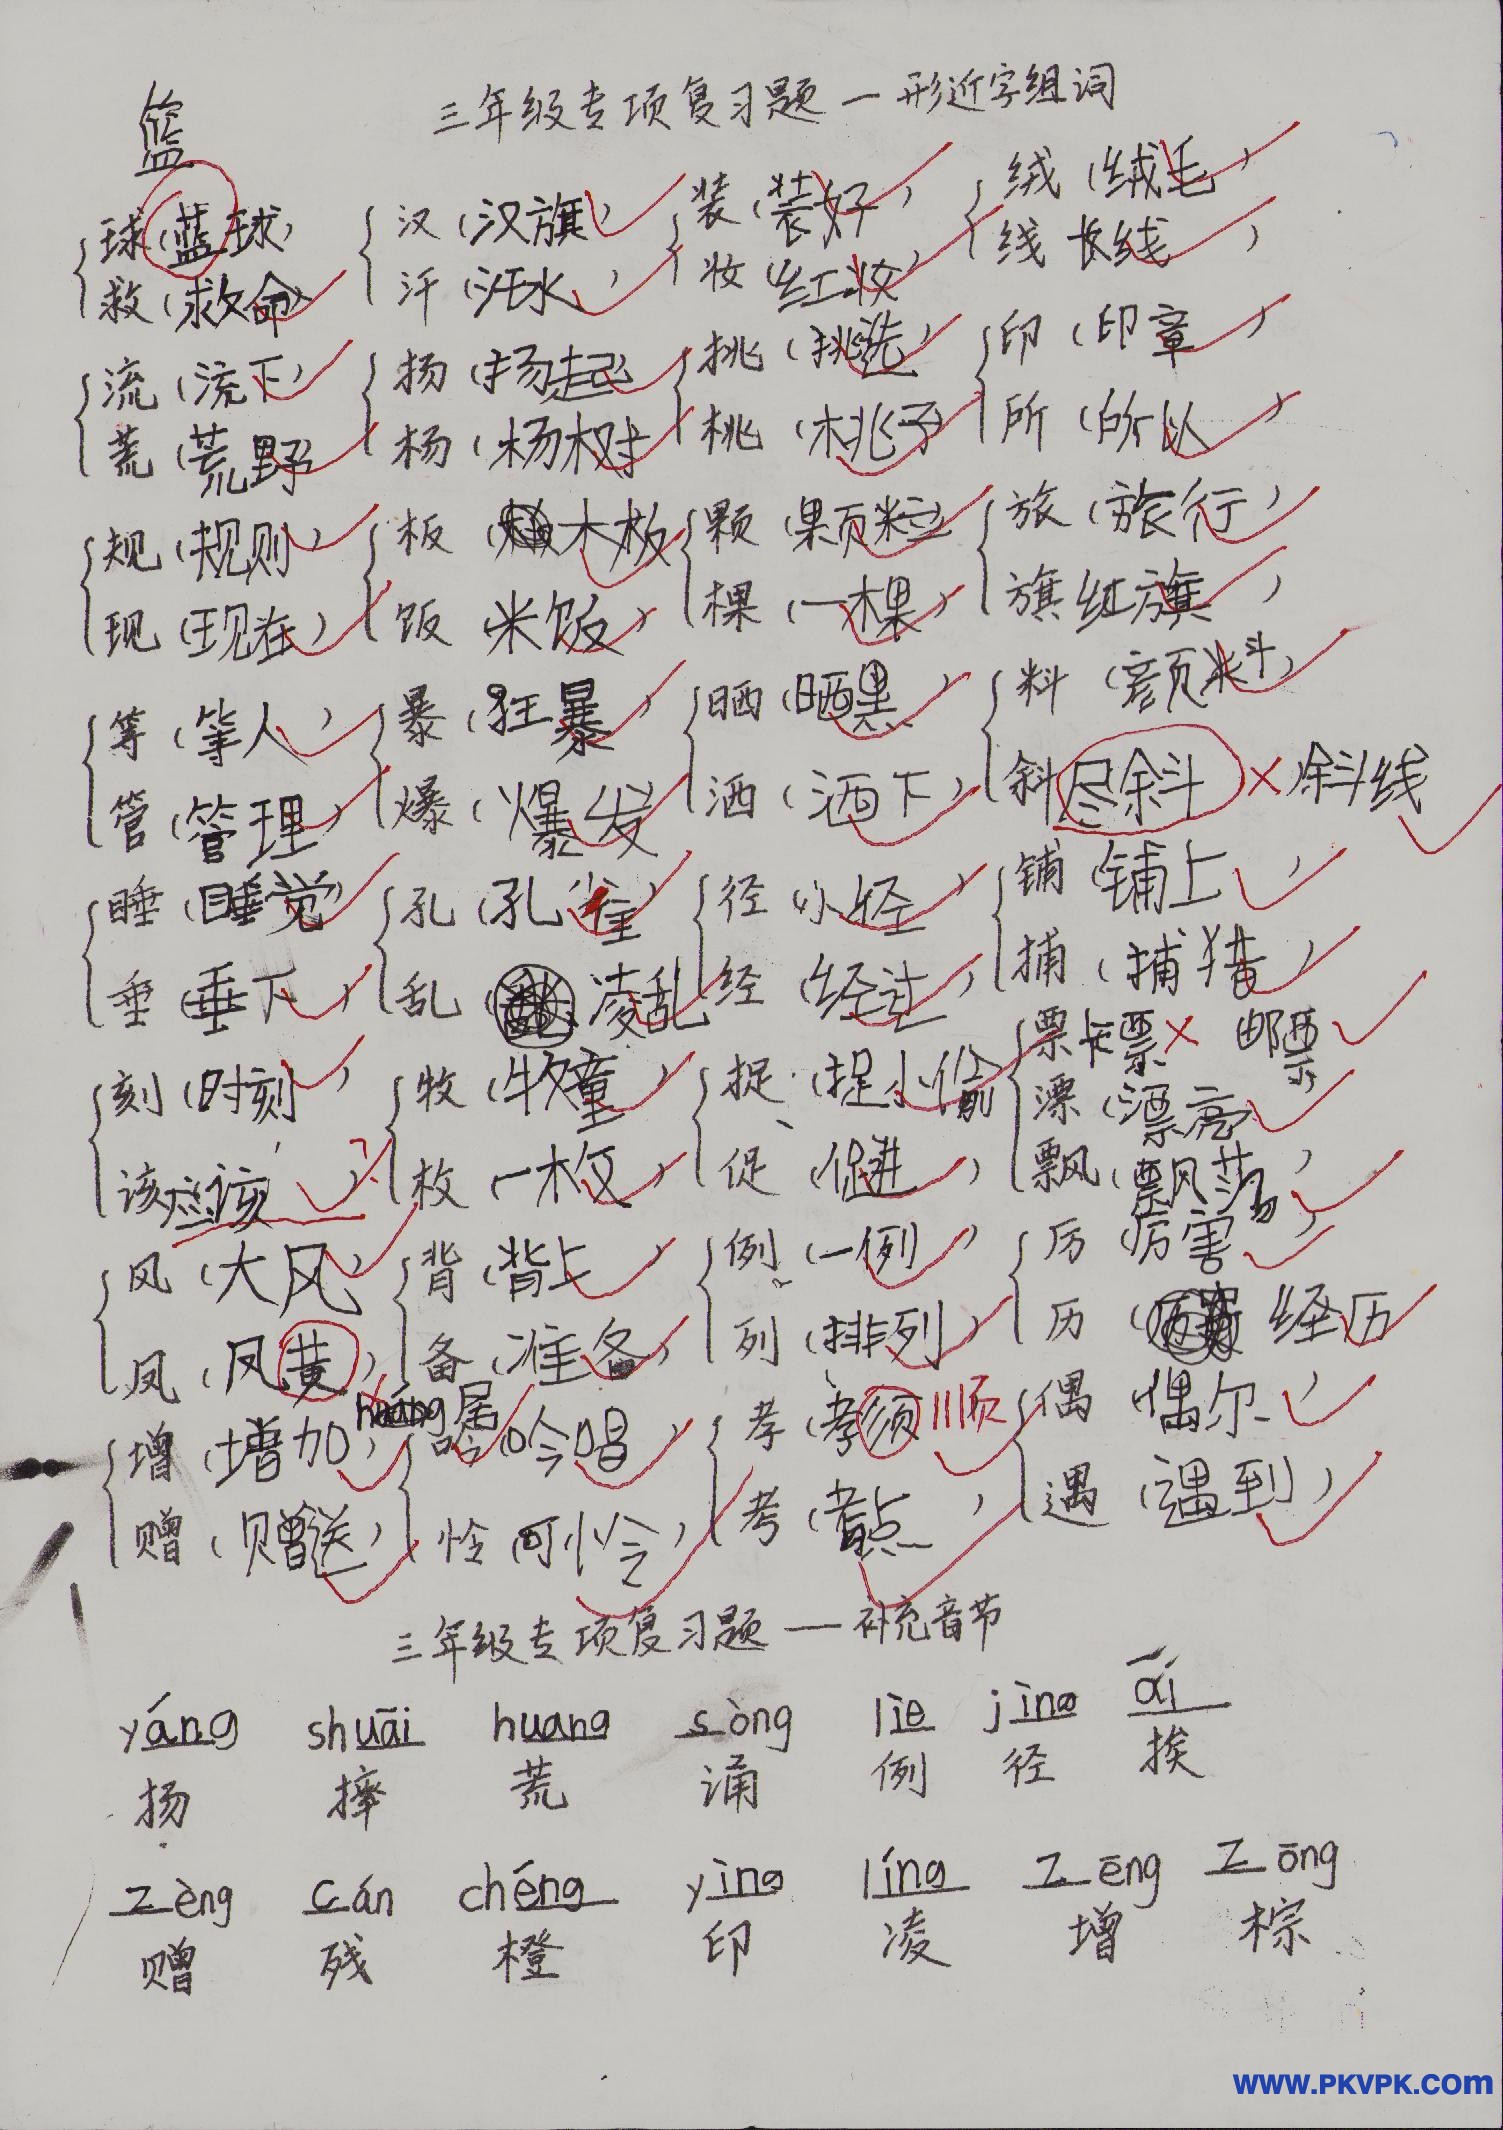 三年级专项复习题—形近字组词
篮
球(蓝球) 汉(汉旗) 装(装好) 绒(绒毛)
救(救命) 汗(汗水) 妆(红妆) 线 长线)
流(流下) 扬(扬起) 挑(挑选) 印(印章)
荒(荒野) 杨(杨树) 桃(桃子) 所(所以)
规(规则) 板(木板 颗(颗粒) 旅(旅行)
现(现在) 饭(米饭) 棵(一棵) 旗 红旗)
等(等人) 暴(狂暴) 晒(晒黑) 料(颜料)
管(管理) 爆(爆发 洒(洒下) 斜 尽斜 × 斜线
睡(睡觉) 孔(孔雀) 径(小径) 铺(铺上)
垂(垂下) 乱(凌乱 经(经过) 捕(捕猎)
刻(时刻) 牧(牧童) 捉(捉小偷 票 卡票 × 邮票
漂(漂亮
该 应该) 枚(一枚) 促(促进) 飘(飘荡)
风(大风) 背(背上) 例(一例) 厉 厉害)
凤(凤黄) 备(准备) 列(排列) 历(经历
huáng
增(增加) 吟 吟唱 孝(孝须 顺 偶 偶尔)
赠(赠送) 怜 可怜) 考(考点) 遇(遇到)
三年级专项复习题—补充音节
yáng shuāi huang sòng liè jìng āi
扬 摔 荒 诵 例 径 挨
zèng cán chéng yìng líng zēng zōng
赠 残 橙 印 凌 增 棕
www.PKVPK.com